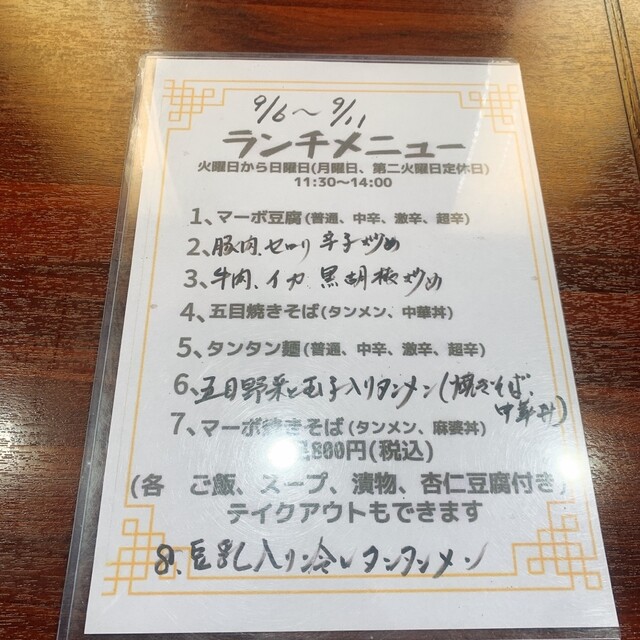 9/6～9/11
ランチメニュー
火曜日から日曜日(月曜日、第二火曜日定休日)
11:30～14:00
1、マーボ豆腐(普通、中辛、激辛、超辛)
2、豚肉、セロリ 辛子炒め
3、牛肉、イカ 黒胡椒炒め
4、五目焼きそば(タンメン、中華丼)
5、タンタン麺(普通、中辛、激辛、超辛)
6、五目野菜と玉子入りタンメン(焼きそば、
中華丼)
7、マーボ焼きそば(タンメン、麻婆丼)
800円(税込)
(各 ご飯、スープ、漬物、杏仁豆腐付き)
テイクアウトもできます
8、豆乳入り冷しタンタンメン